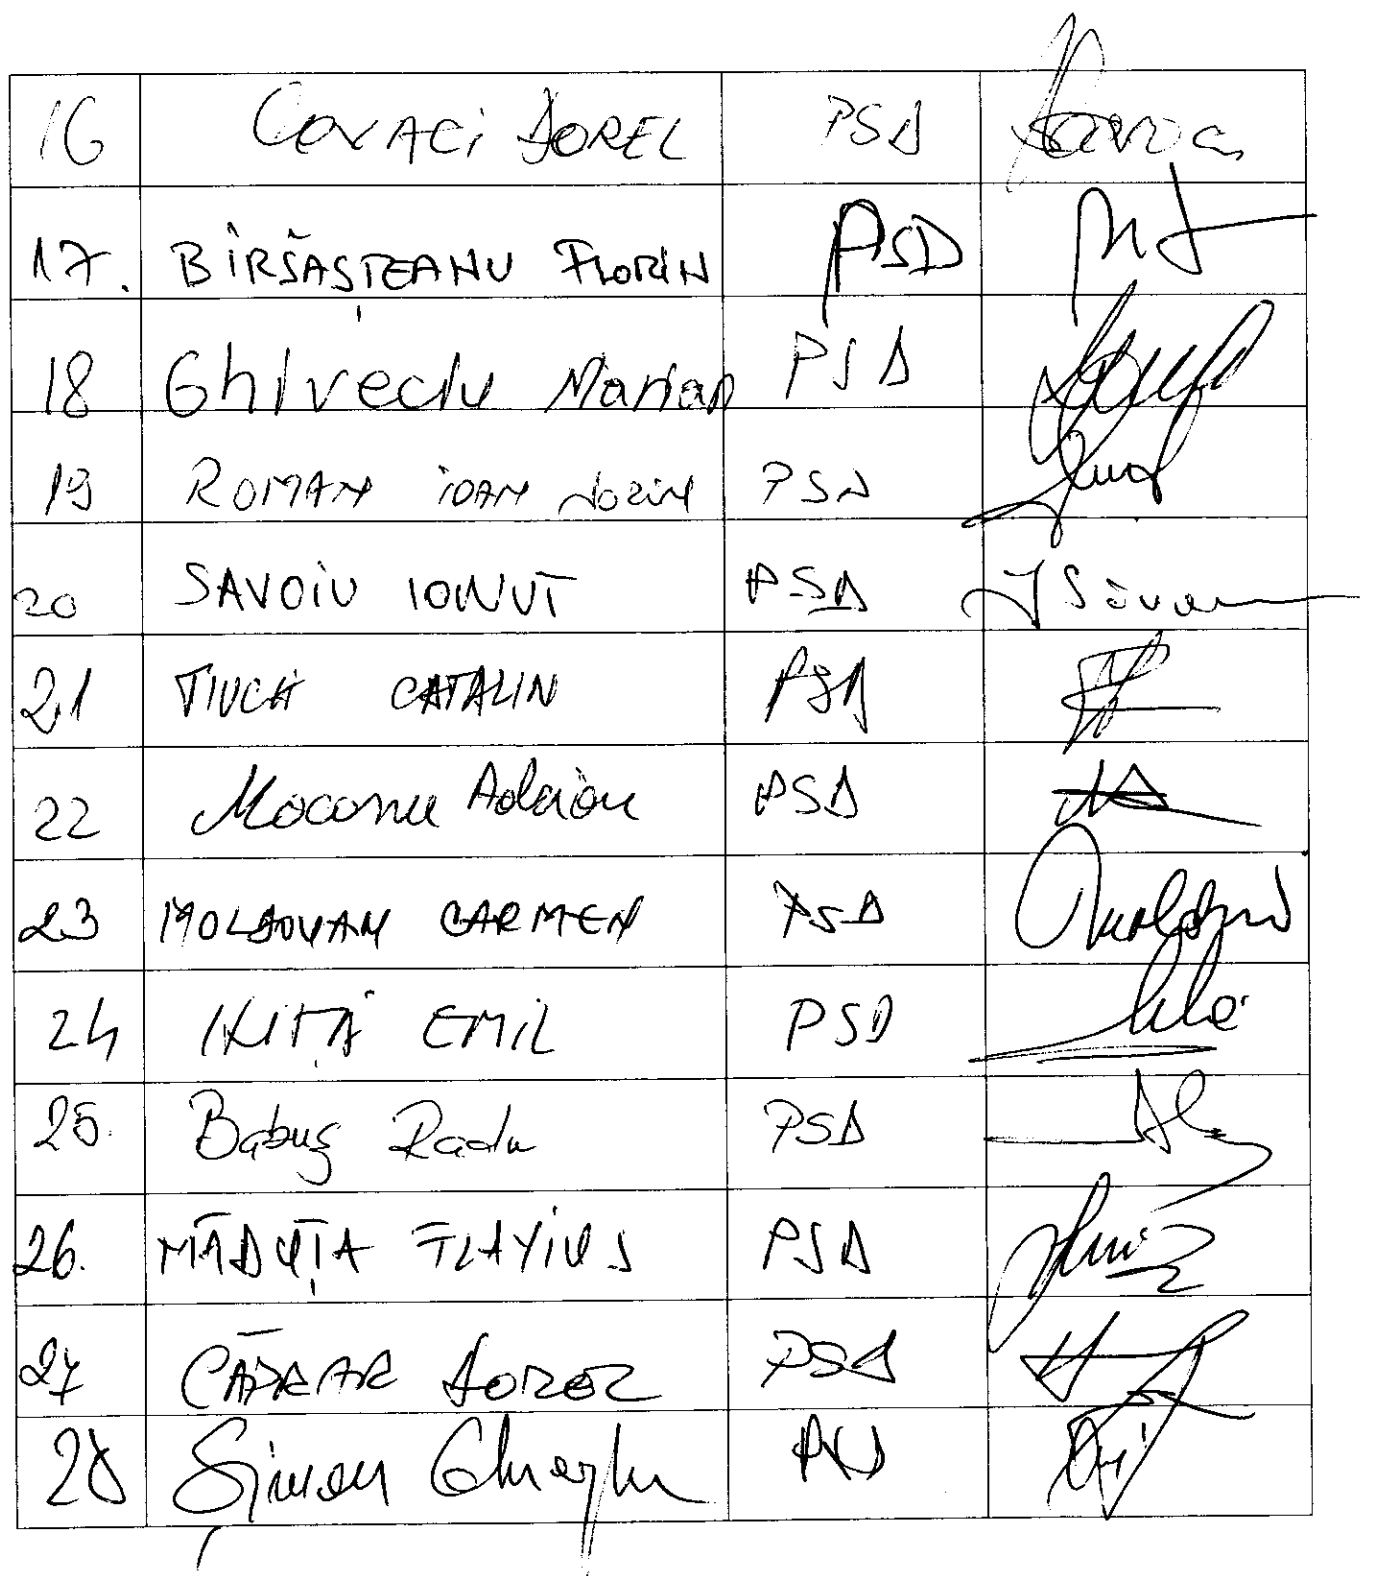 16 COVACI DOREL PSD
17. BÎRSĂȘTEANU FLORIN PSD
18 Ghiveciu Marian PSD
19 ROMAN IOAN SORIN PSD
20 SAVOIU IONUT PSD
21 TIUCH CATALIN PSD
22 Mocanu Adrian PSD
23 MOLDOVAN CARMEN PSD
24 NIȚĂ EMIL PSD
25. Babuș Radu PSD
26. MĂDUȚA FLAVIUS PSD
27 CĂPRAR DOREL PSD
28 Șimon Gheorghe PSD